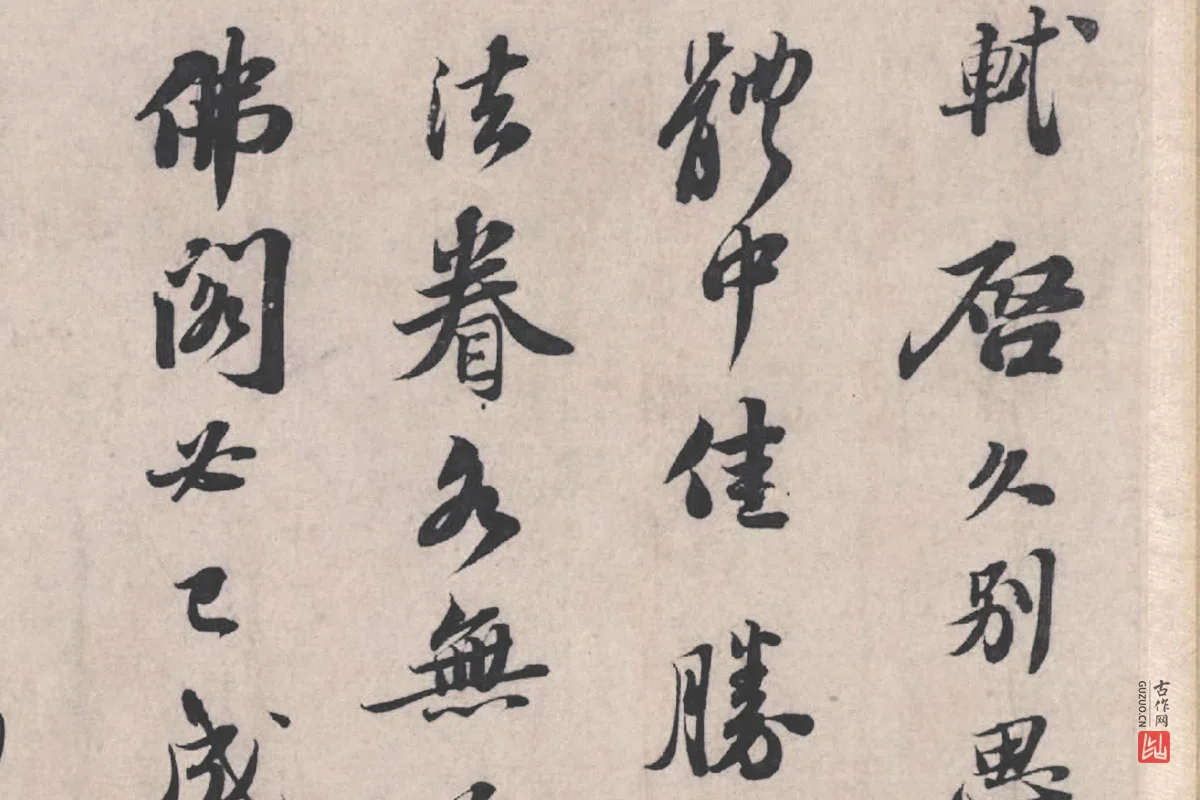 軾啓久別思
體中佳勝
法眷各無
佛閣必已成
古作网
GUZUO.CN